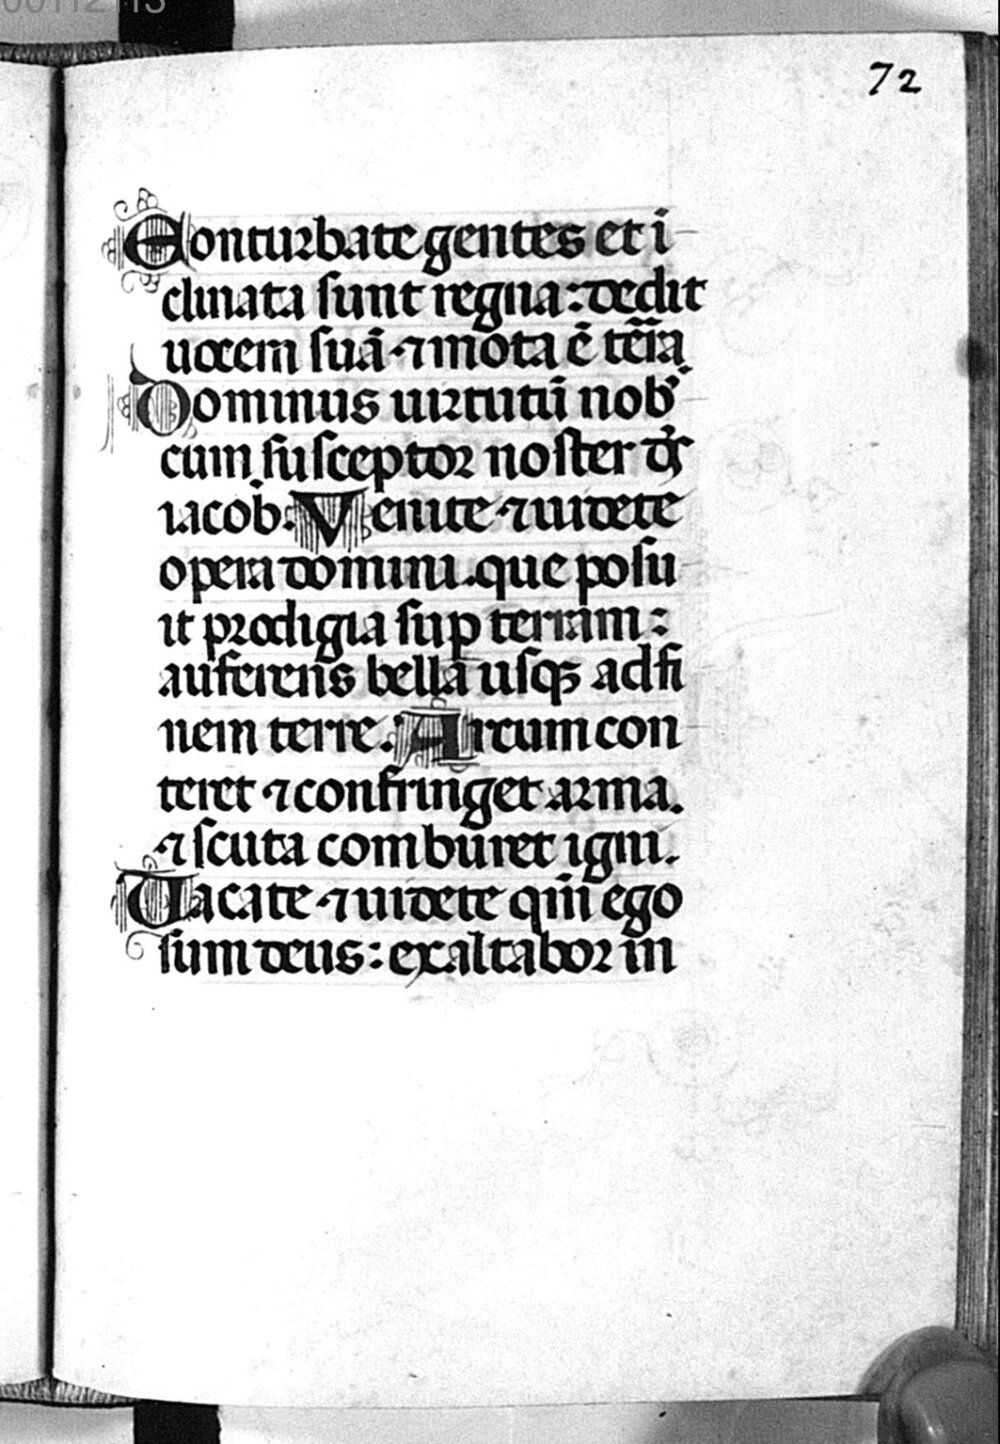 00112113
72
Conturbate gentes et i
clinata sunt regna: dedit
uocem suā ⁊ mota ē t̄r̄a.
Dominus uirtutū nob᷒
cum susceptor noster d̄s
iacob. Venite ⁊ uidete
opera domini. que posu
it prodigia sup terram:
auferens bella usqꝫ ad fi
nem terre. Arcum con
teret ⁊ confringet arma.
⁊ scuta comburet igni.
Vacate ⁊ uidete qm̄ ego
sum deus: exaltabor in